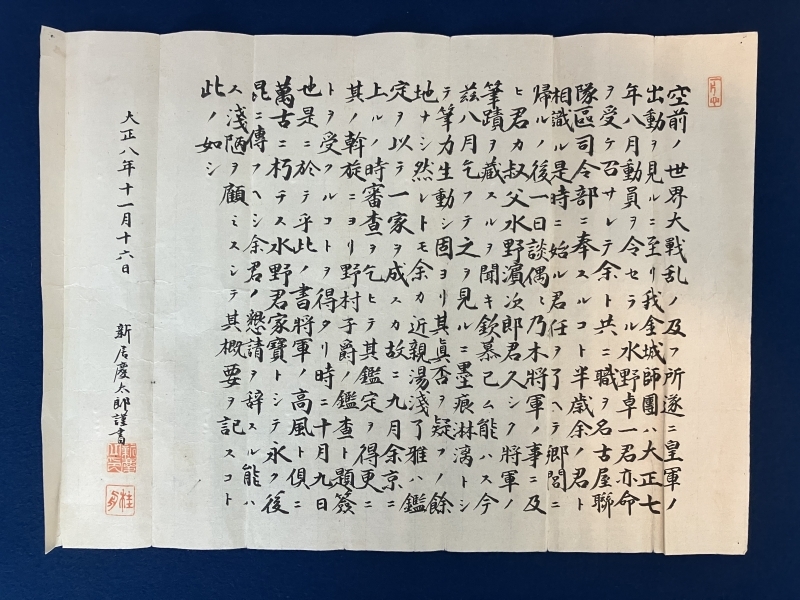 空前ノ世界大戰乱ノ及フ所遂ニ皇軍ノ
出動ヲ見ルニ至リ我金城師團ハ大正七
年八月動員ヲ令セラル水野卓一君亦命
ヲ受ケ召サレテ余ト共ニ職ヲ名古屋聯
隊區司令部ニ奉スルコト半歳余ノ君ト
相識ル是時ニ始ル君任ヲ了ヘテ郷閭ニ
帰ルノ後一日談偶〻乃木將軍ノ事ニ及
ヒ君カ叔父水野濵次郎君久シク將軍ノ
筆蹟ヲ藏スルヲ聞キ欽慕已ム能ハス今
茲八月乞フテ之ヲ見ルニ墨痕淋漓トシ
テ筆力生動シ固ヨリ其眞否ヲ疑フノ餘
地ナシ然レトモ余カ近親湯淺了雅ハ鑑
定ヲ以テ一家ヲ成スカ故ニ九月余京ニ
上ルノ時審查ヲ乞ヒテ其鑑定ヲ得更ニ
其ノ斡旋ニヨリ野村子爵ノ鑑查ト題簽
トヲ受クルコトヲ得タリ時ニ十月九日
也是ニ於テ乎此ノ書將軍ノ高風ト俱ニ
萬古ニ朽テス水野君家寶トシテ永ク後
昆ニ傳フヘシ余君ノ懇請ヲ辞スル能ハ
ス淺陋ヲ顧ミスシテ其概要ヲ記スコト
此ノ如シ
大正八年十一月十六日
新居慶太郎謹書